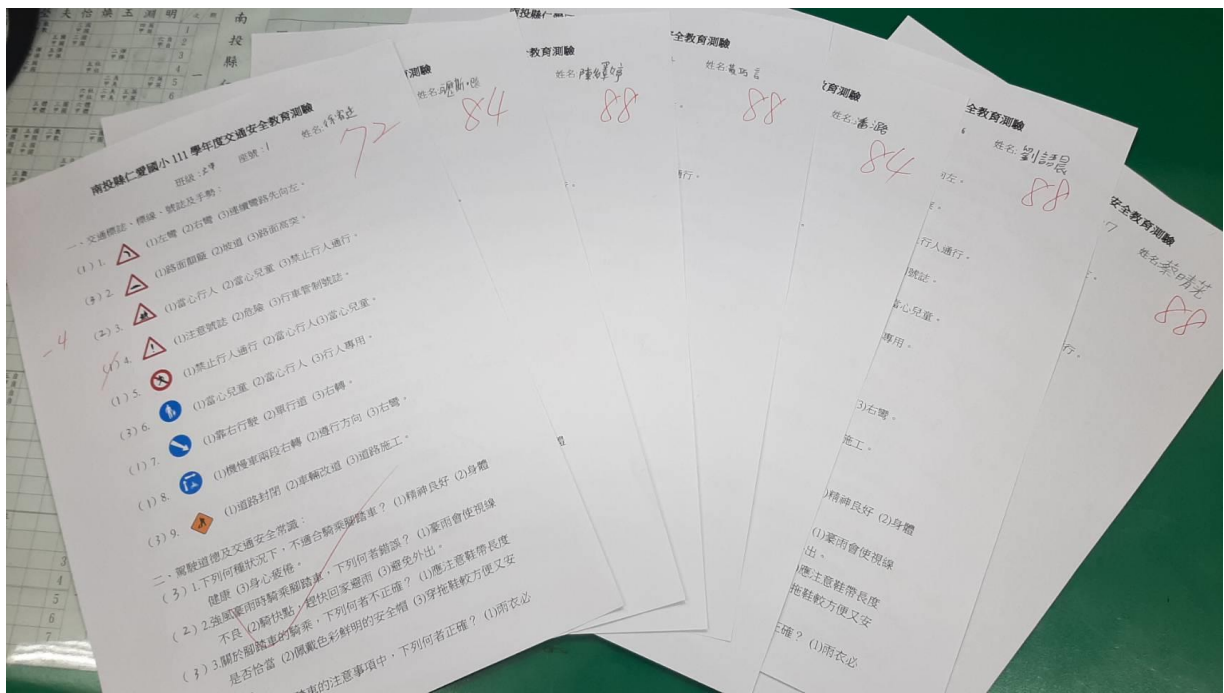 南投縣仁愛國小 111 學年度交通安全教育測驗
班級: 座號:1 姓名:
72
一、交通標誌、標線、號誌及手勢:
(1) 1. (1)左彎 (2)右彎 (3)連續彎路先向左。
(3) 2. (1)路面顛簸 (2)坡道 (3)路面高突。
(2) 3. (1)當心行人 (2)當心兒童 (3)禁止行人通行。
-4
(1) 4. (1)注意號誌 (2)危險 (3)行車管制號誌。
(1) 5. (1)禁止行人通行 (2)當心行人(3)當心兒童。
(3) 6. (1)當心兒童 (2)當心行人 (3)行人專用。
(1) 7. (1)靠右行駛 (2)單行道 (3)右轉。
(1) 8. (1)機慢車兩段右轉 (2)遵行方向 (3)右彎。
(3) 9. (1)道路封閉 (2)車輛改道 (3)道路施工。
二、駕駛道德及交通安全常識:
(3) 1.下列何種狀況下,不適合騎乘腳踏車? (1)精神良好 (2)身體
健康 (3)身心疲倦。
(2) 2.強風豪雨時騎乘腳踏車,下列何者錯誤? (1)豪雨會使視線
不良 (2)騎快點,趕快回家避雨 (3)避免外出。
(3) 3.關於腳踏車的騎乘,下列何者不正確? (1)應注意鞋帶長度
是否恰當 (2)佩戴色彩鮮明的安全帽 (3)穿拖鞋較方便又安
踏車的注意事項中,下列何者正確? (1)雨衣必
測驗
姓名:
84
教育測驗
姓名:
88
全教育測驗
姓名:
88
行。
教育測驗
姓名:潘
84
全教育測驗
姓名:劉語晨
88
向左。
行人通行。
號誌。
當心兒童。
專用。
3)右彎。
施工。
)精神良好 (2)身體
(1)豪雨會使視線
出。
應注意鞋帶長度
拖鞋較方便又安
正確? (1)雨衣必
安全教育測驗
姓名:蔡晴
88
行。
南
投
縣